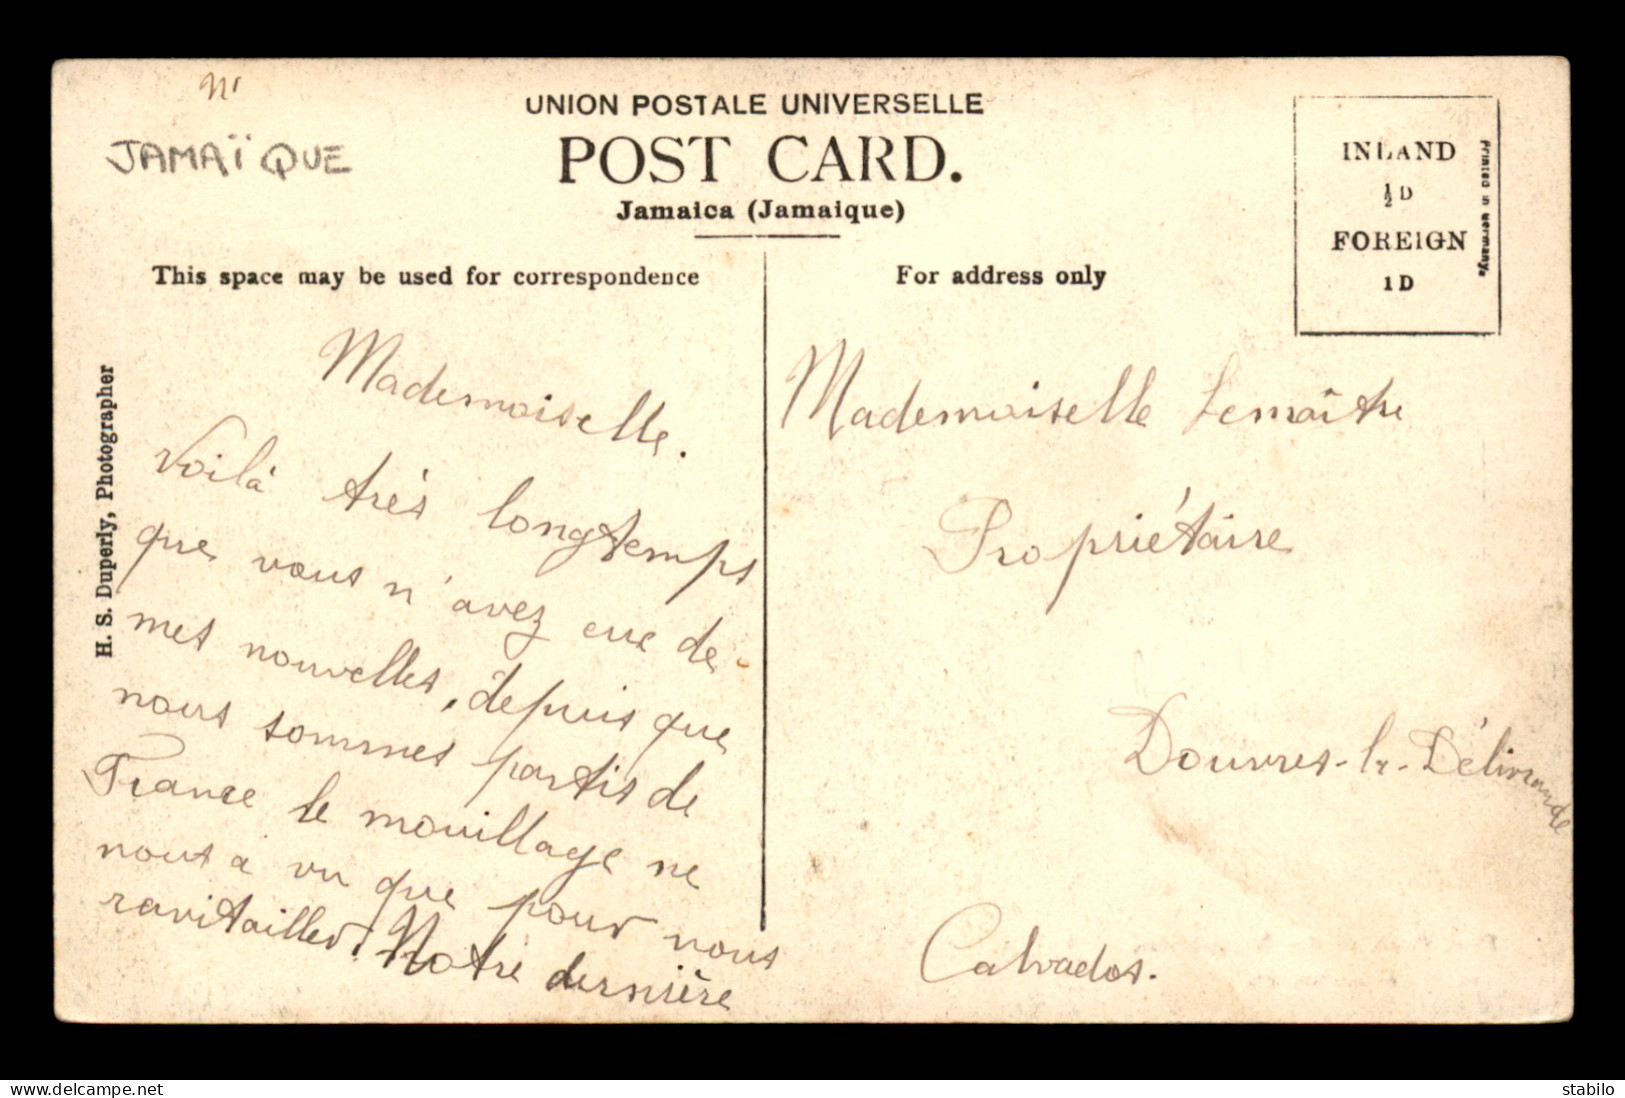 JAMAÏQUE
UNION POSTALE UNIVERSELLE
POST CARD.
Jamaica (Jamaique)
INLAND
½D
FOREIGN
1D
Printed in Germany.
This space may be used for correspondence
For address only
H. S. Duperly, Photographer
Mademoiselle.
Voilà très longtemps
que vous n'avez eue de
mes nouvelles, depuis que
nous sommes partis de
France le mouillage ne
nous a vu que pour nous
ravitailler. Notre dernière
Mademoiselle Lemaître
Propriétaire
Douvres-la-Délivrande
Calvados.
www.delcampe.net
stabilo